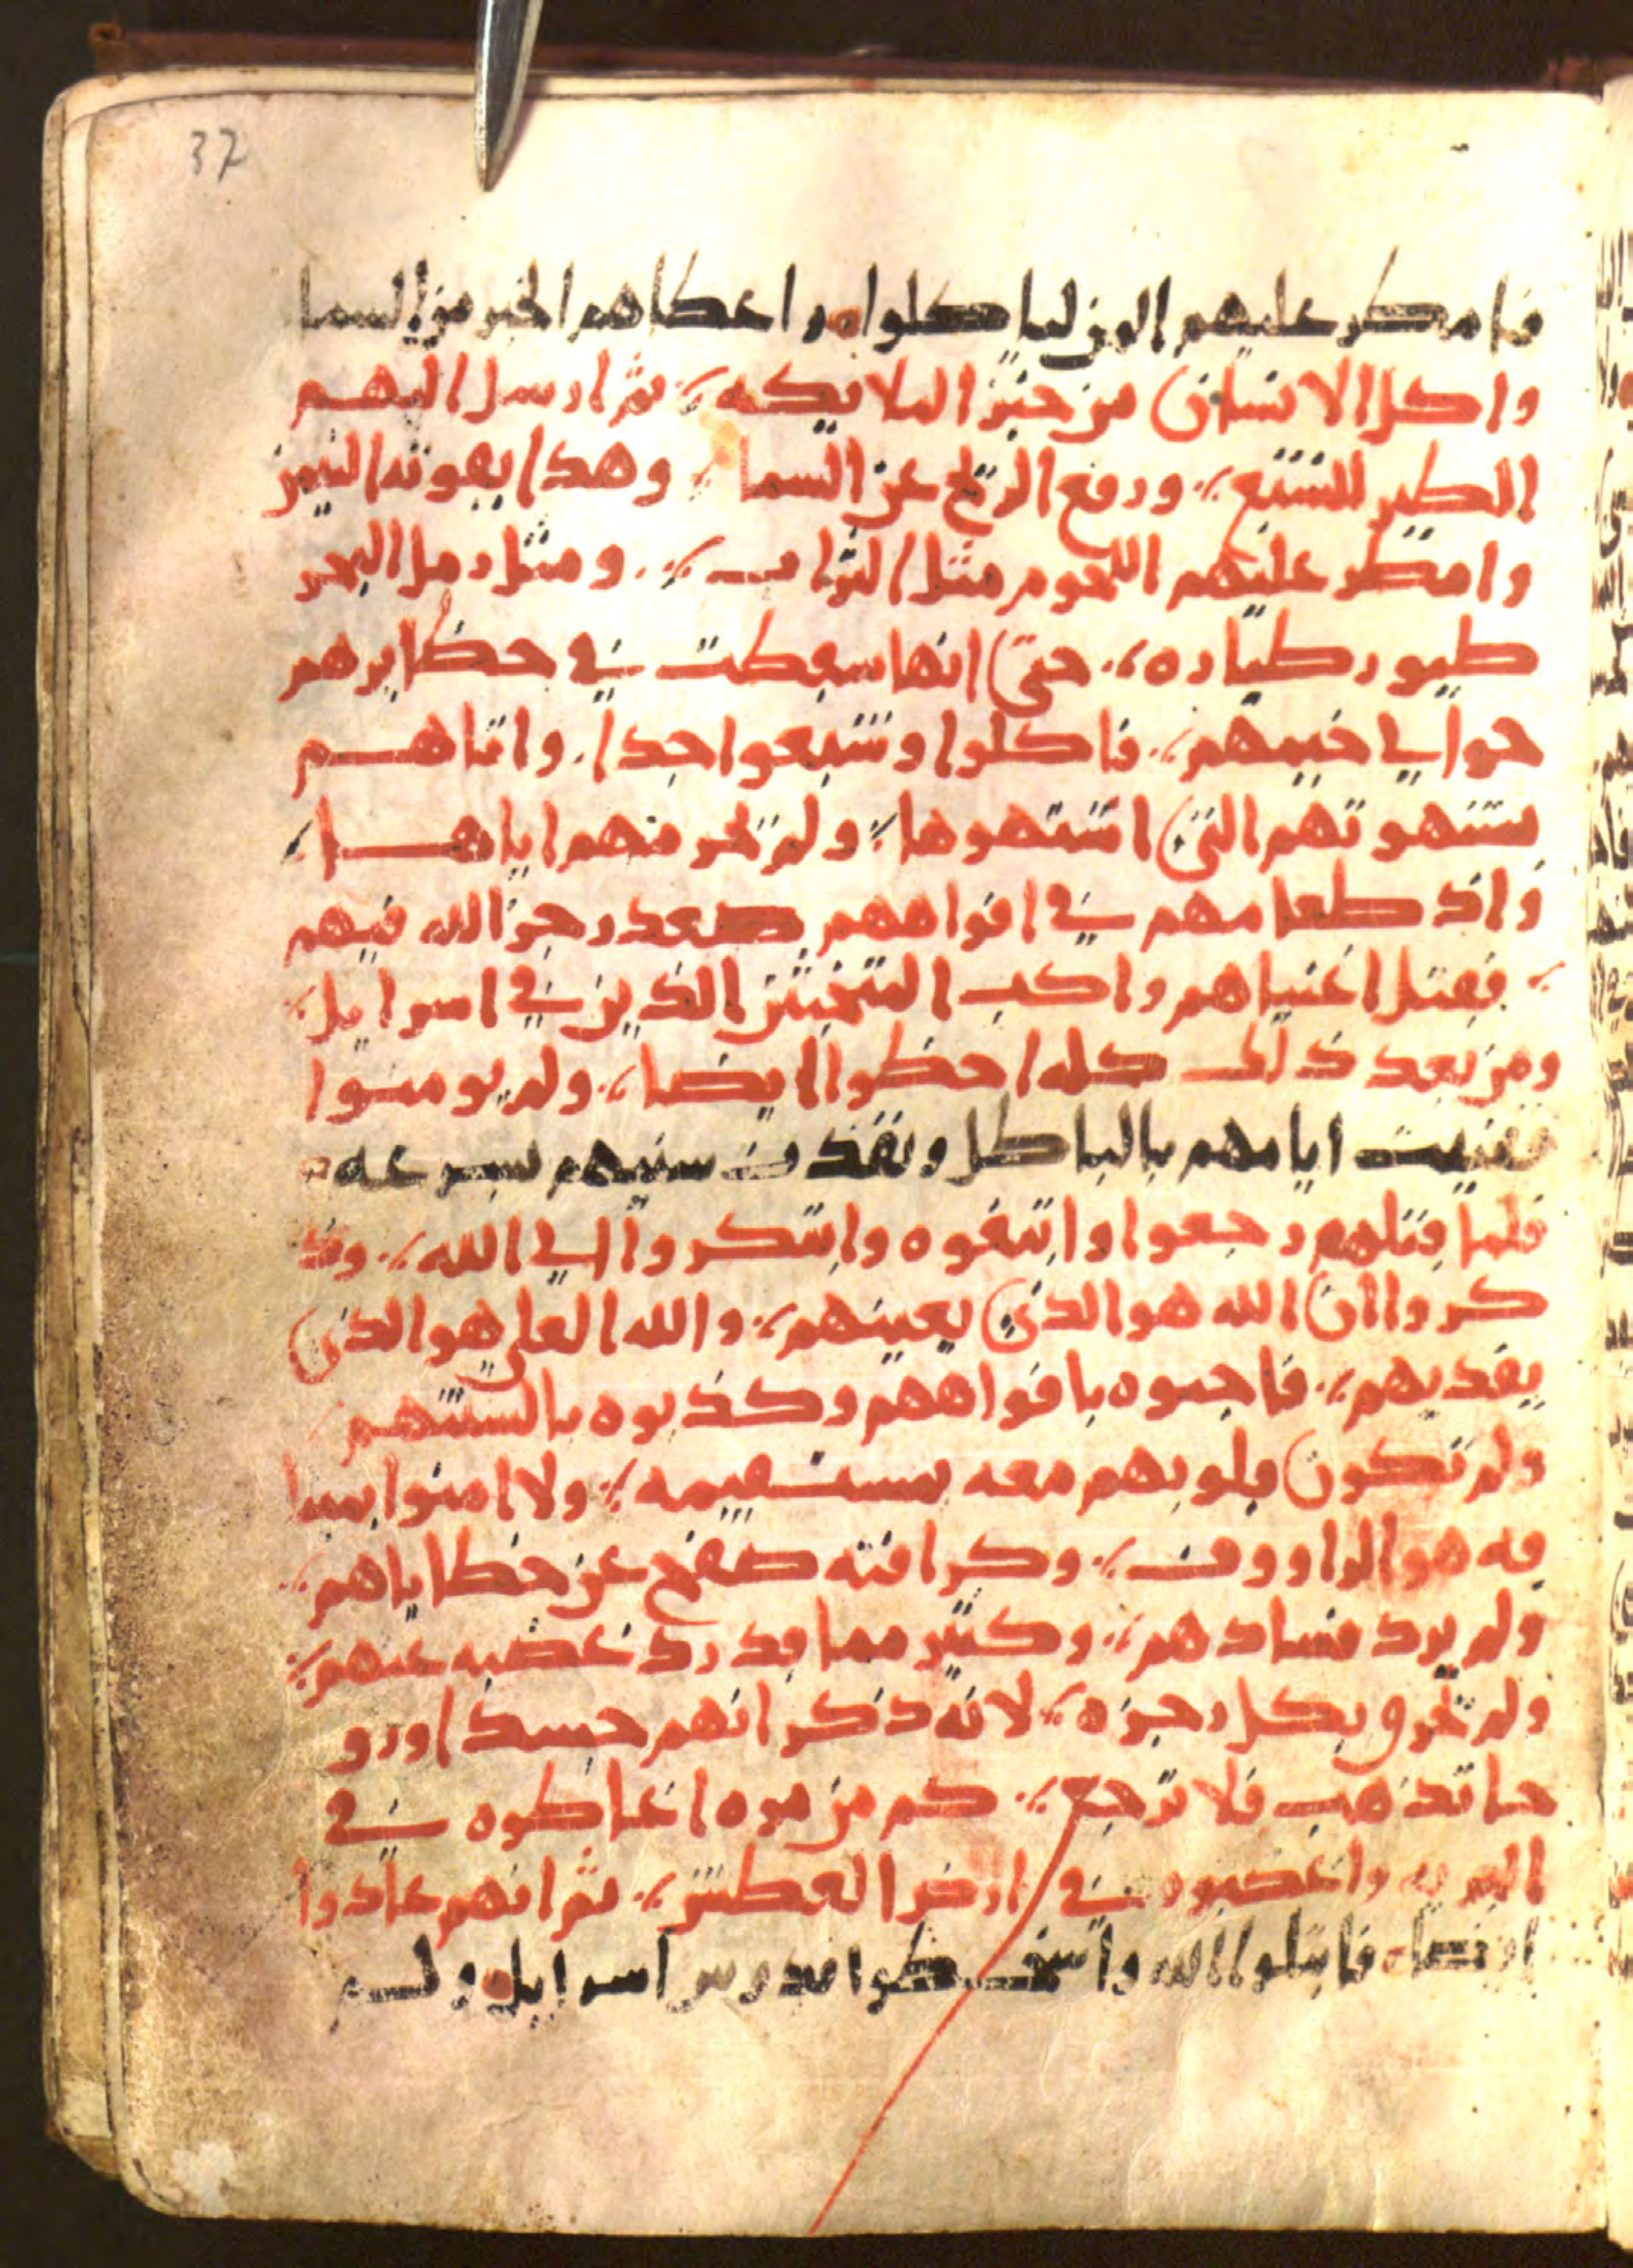 37
فامطر عليهم المن لياكلوا واعطاهم الخبز من السما
واكل الانسان من خبز الملايكه ثم ارسل اليهم
الطير للشبع ورفع الريح عن السما وهدا بقوته التيمن
وامطر عليهم اللحوم مثل التراب ومثل رمل البحر
طيور طياره حتى انها سقطت في حظايرهم
حوالي خيمهم فاكلوا وشبعوا جدا واتاهم
شهوتهم التي اشتهوها ولم يحرمهم اياها
واذ طعامهم في افواههم صعد رجز الله فيهم
فقتل اغنياهم واكب المتخبثين الذين في اسرايل
ومن بعد ذلك كله اخطوا ايضا ولم يومنوا
ففنيت ايامهم بالباطل ونفذت سنيهم بسرعه
فلما قتلهم رجعوا وابتغوه وابتكروا الي الله وذ
كروا ان الله هو الذي يعينهم والله العلي هو الذي
يفديهم فاحبوه بافواههم وكذبوه بالسنتهم
ولم تكون قلوبهم معه مستقيمه ولا امنوا بميثا
قه هو الراووف وكرافته صفح عن خطاياهم
ولم يرد فسادهم وكثير مما قد رد غضبه عنهم
ولم يحرق بكل رجزه لانه ذكر انهم جسدا ورو
حا تذهب فلا ترجع كم من مره اغاظوه في
البريه واغضبوه في ارض العطش ثم انهم عادوا
ايضا فابتلوا الله واسخطوا قدوس اسرايل ولم